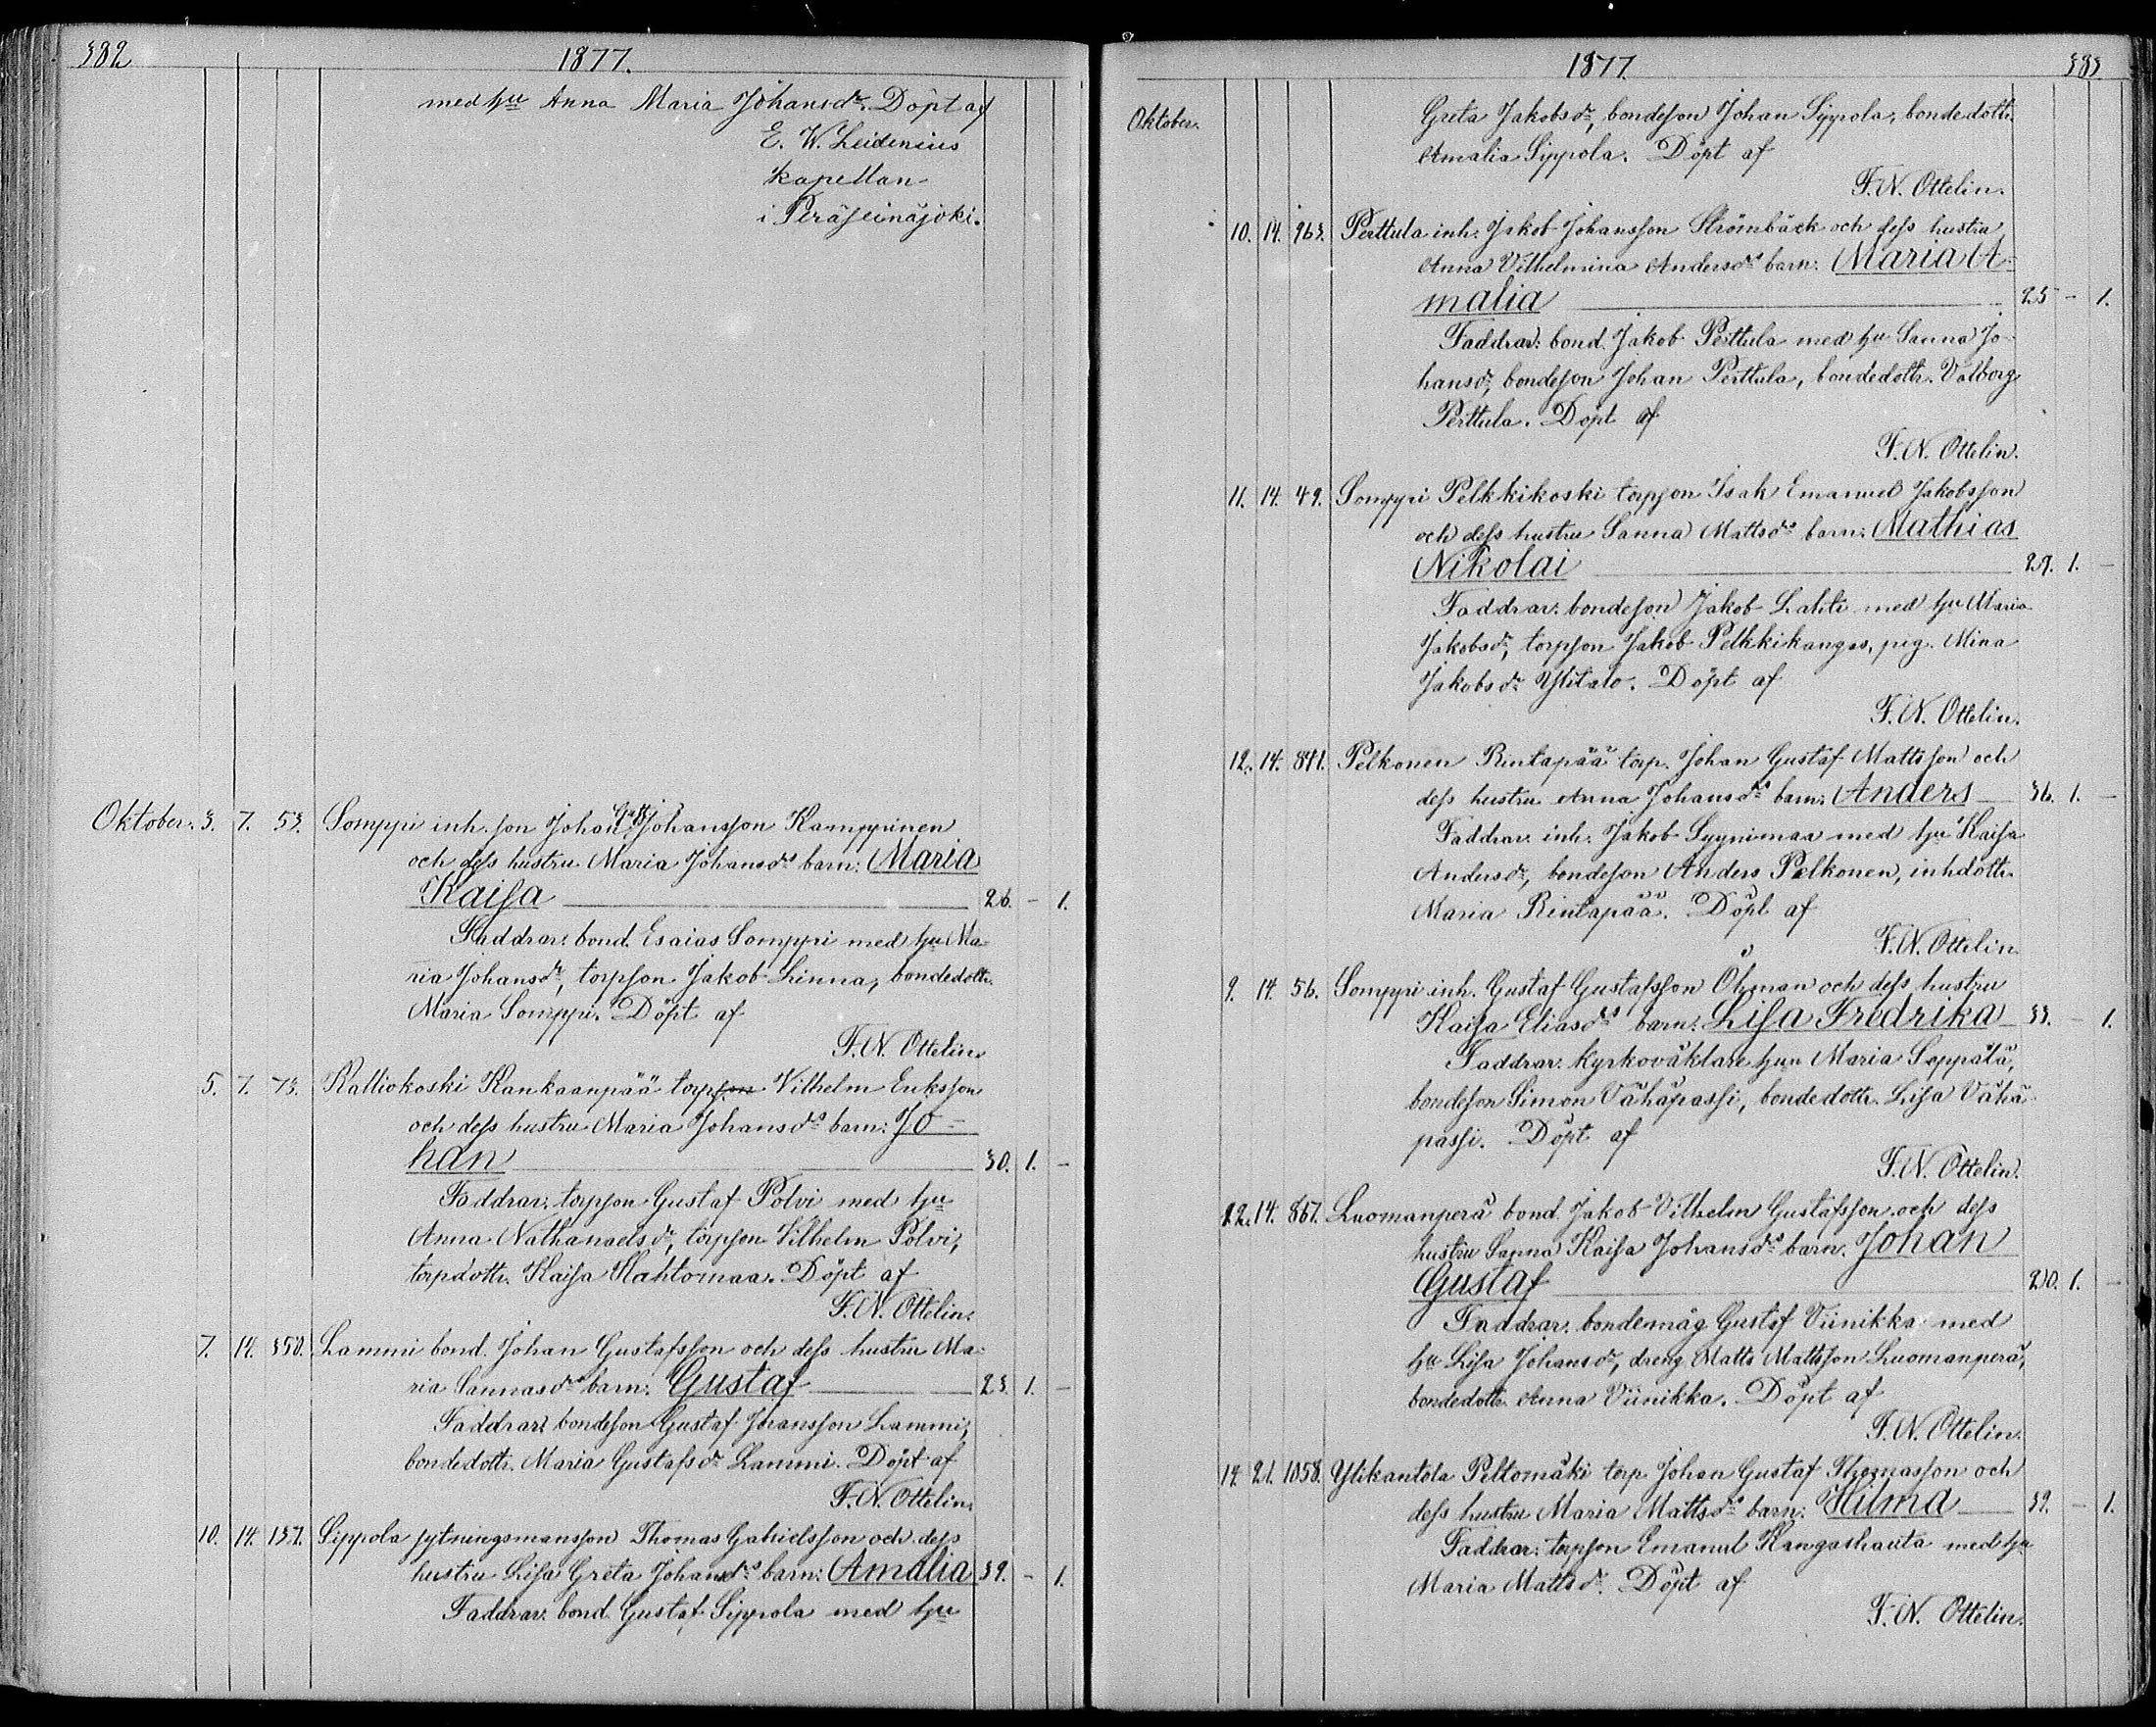 382
1877.
med hu Anna Maria Johansdr. Döpt af
E. W. Leidenius
kapellan
i Peräseinäjoki.
Oktober. 3. 7. 53. Somppi inh. son Johan Johansson Kamppinen
och dess hustru Maria Johansdrs barn: Maria
Kaisa 26. - 1.
Faddrar: bond. Esaias Somppi med hu Ma-
ria Johansdr, torpson Jakob Linna, bondedottr.
Maria Somppi. Döpt af
F. N. Ottelin.
5. 7. 73. Kalliokoski Kankaanpää torpson Vilhelm Eriksson
och dess hustru Maria Johansdrs barn: Jo-
han 30. 1. -
Faddrar: torpson Gustaf Polvi med hu
Anna Nathanaelsdr, torpson Vilhelm Polvi,
torpdottr. Kaisa Hahtomaa. Döpt af
F. N. Ottelin.
7. 14. 350. Lammi bond. Johan Gustafsson och dess hustru Ma-
ria Sannasdrs barn: Gustaf 23. 1. -
Faddrar: bondeson Gustaf Johansson Lammi,
bondedottr. Maria Gustafsdr Lammi. Döpt af
F. N. Ottelin.
10. 14. 137. Sippola sytningsmansson Thomas Gabrielsson och dess
hustru Lisa Greta Johansdrs barn: Amalia 39. - 1.
Faddrar: bond. Gustaf Sippola med hu
1877
383
Oktober.
Greta Jakobsdr, bondeson Johan Sippola, bondedottr.
Amalia Sippola. Döpt af
F. N. Ottelin.
10. 14. 963. Perttula inh. Jakob Johansson Strömbäck och dess hustru
Anna Vilhelmina Andersdrs barn: Maria A-
malia 25 - 1.
Faddrar: bond. Jakob Perttula med hu Sanna Jo-
hansdr, bondeson Johan Perttula, bondedottr. Valborg
Perttula. Döpt af
F. N. Ottelin.
11. 14. 49. Somppi Pelkkikoski torpson Isak Emanuel Jakobsson
och dess hustru Sanna Mattsdrs barn: Mathias
Nikolai 29. 1. -
Faddrar: bondeson Jakob Lahti med hu Maria
Jakobsdr, torpson Jakob Pelkkikangas, pig. Mina
Jakobsdr Ylitalo. Döpt af
F. N. Ottelin.
12. 14. 841. Pelkonen Rintapää torp. Johan Gustaf Mattsson och
dess hustru Anna Johansdrs barn: Anders 36. 1. -
Faddrar: inh. Jakob Syynimaa med hu Kaisa
Andersdr, bondeson Anders Pelkonen, inhdottr.
Maria Rintapää. Döpt af
F. N. Ottelin
9. 14. 56. Somppi inh. Gustaf Gustafsson Öhman och dess hustru
Kaisa Eliasdrs barn: Lisa Fredrika 33. - 1.
Faddrar: kyrkoväktare hun Maria Seppälä,
bondeson Simon Vähäpassi, bondedottr. Lisa Vähä-
passi. Döpt af
F. N. Ottelin.
12. 14. 867. Luomanperä bond. Jakob Vilhelm Gustafsson och dess
hustru Sanna Kaisa Johansdrs barn: Johan
Gustaf 20. 1. -
Faddrar: bondemåg Gustaf Viinikka med
hu Lisa Johansdr, dreng Matts Mattsson Luomanperä,
bondedottr. Anna Viinikka. Döpt af
F. N. Ottelin.
14. 21. 1058. Ylikantola Peltomäki torp. Johan Gustaf Thomasson och
dess hustru Maria Mattsdrs barn: Hilma 39. - 1.
Faddrar: torpson Emanuel Kangashauta med hu
Maria Mattsdr. Döpt af
F. N. Ottelin.